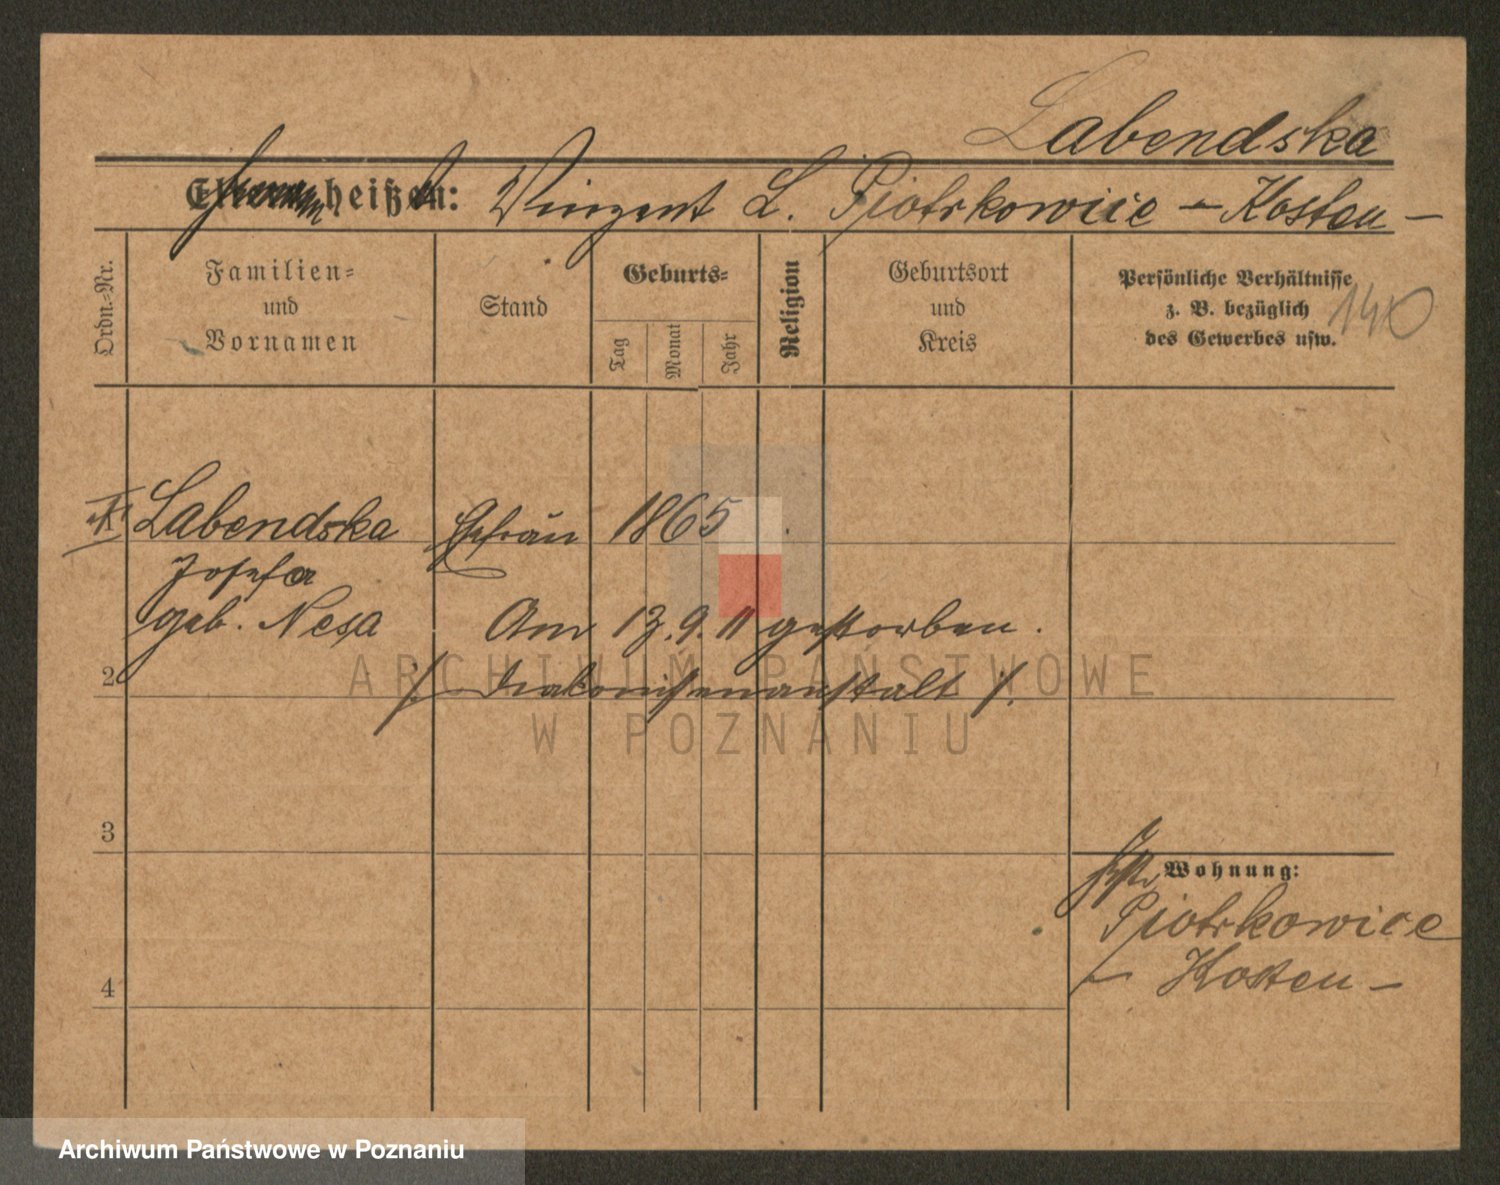 Labendska
heißt: Vinzent L. Piotrkowice – Kosten –
Ordn.=Nr.
Familien=
und
Vornamen
Stand
Geburts=
Tag
Monat
Jahr
Religion
Geburtsort
und
Kreis
Persönliche Verhältnisse
z. B. bezüglich
des Gewerbes usw.
140
Labendska Ehefrau 1865
Josefa
geb. Nesa Am 13.9.11 gestorben.
2 ./. Diakonissenanstalt ./.
3
Wohnung:
Piotrkowice
– Kosten –
4
ARCHIWUM PAŃSTWOWE
W POZNANIU
Archiwum Państwowe w Poznaniu